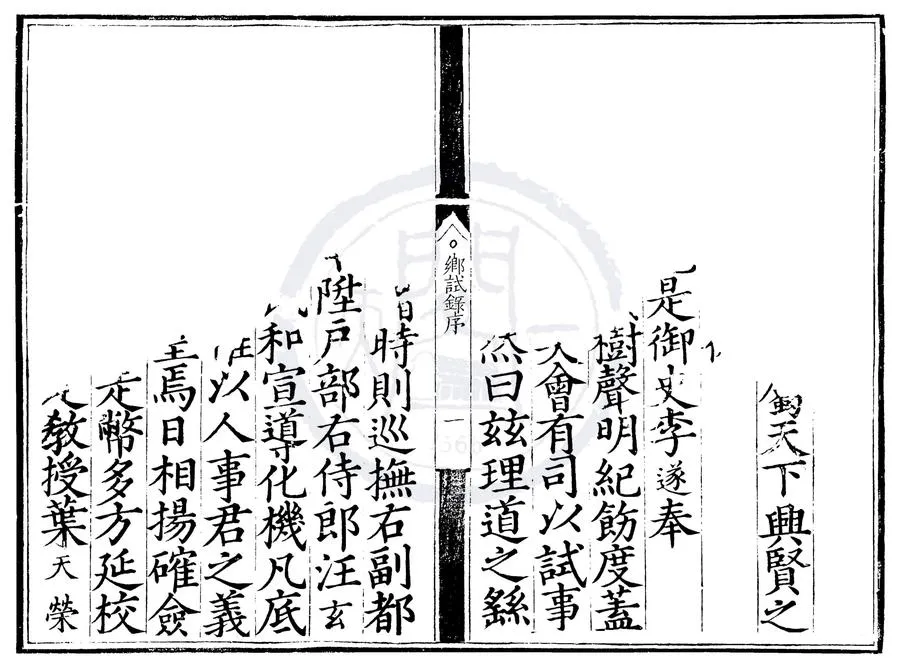 天下興賢之
是御史李遂奉
樹聲明紀飭度蓋
會有司以試事
然曰兹理道之繇
鄉試錄序
一
時則巡撫右副都
陞戶部右侍郎汪玄
和宣導化機凡底
以人事君之義
焉日相揚確僉
幣多方延校
教授葉天榮